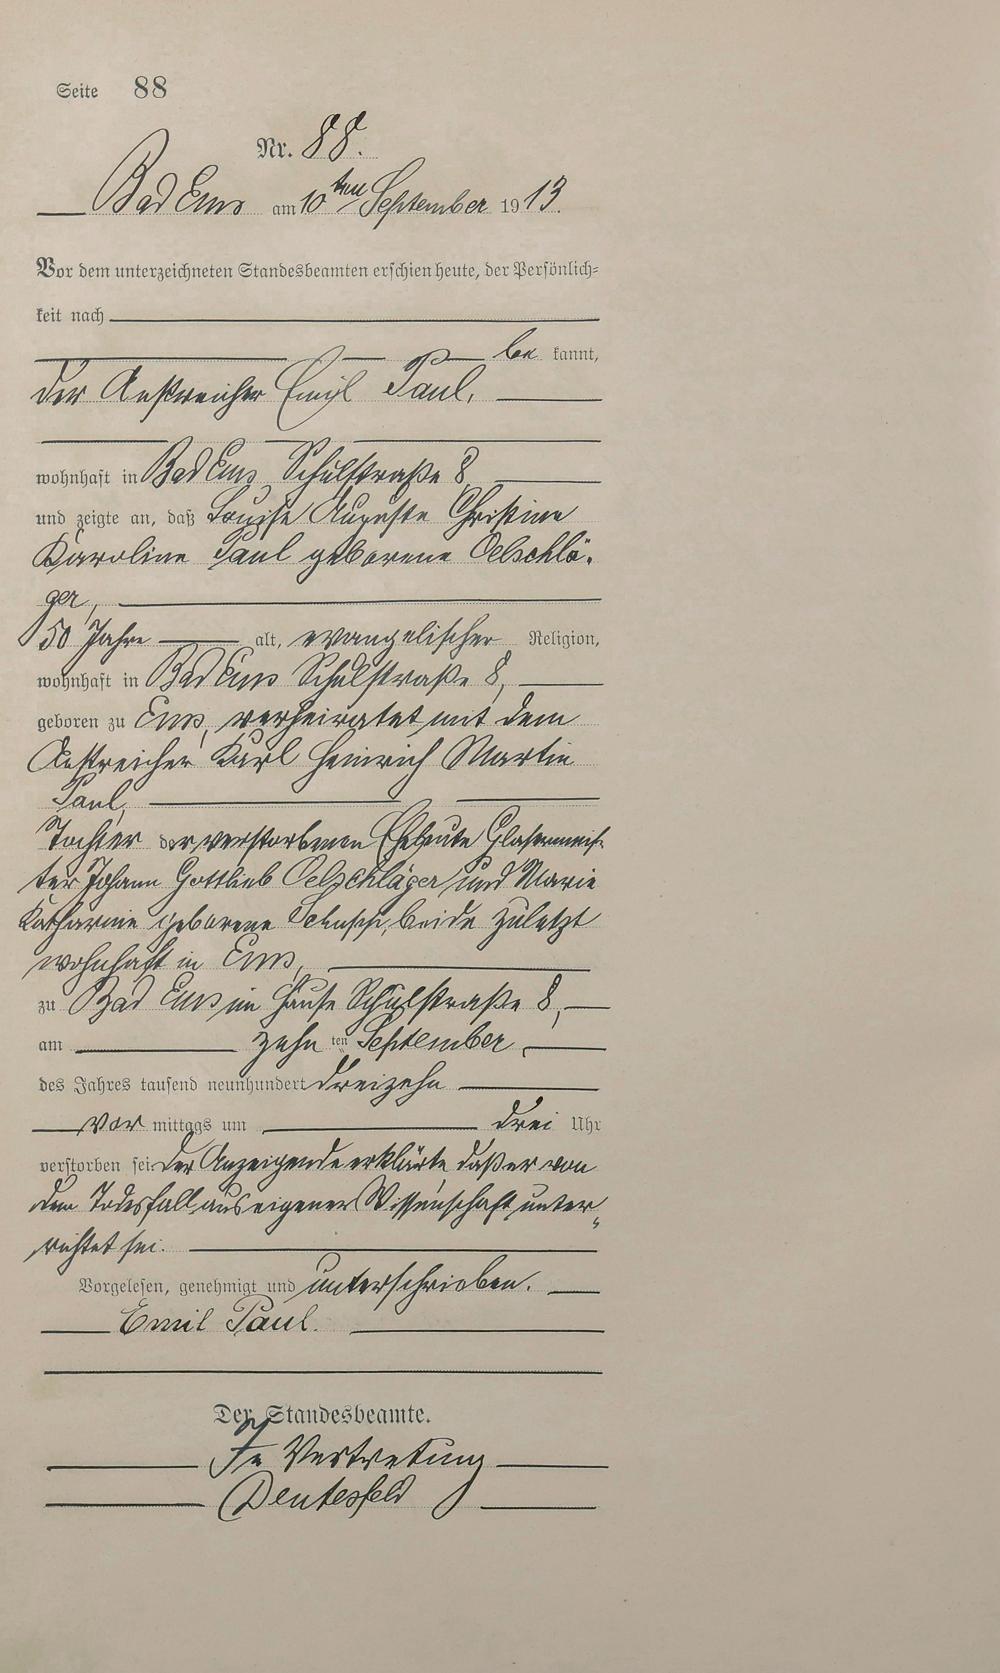 Seite 88
Nr. 88.
Bad Ems am 10ten September 1913.
Vor dem unterzeichneten Standesbeamten erschien heute, der Persönlich-
keit nach
be kannt,
der Anstreicher Emil Paul,
wohnhaft in Bad Ems Schulstraße 8
und zeigte an, daß Louise Auguste Christine
Karoline Paul geborene Oelschlä-
ger,
50 Jahre alt, evangelischer Religion,
wohnhaft in Bad Ems Schulstraße 8,
geboren zu Ems, verheiratet mit dem
Anstreicher Karl Heinrich Martin
Paul,
Tochter der verstorbenen Eheleute Glasermeis-
ter Johann Gottlieb Oelschläger und Marie
Katharine geborene beide zuletzt
wohnhaft in Ems,
zu Bad Ems im Hause Schulstraße 8,
am zehn ten September
des Jahres tausend neunhundert dreizehn
vor mittags um drei Uhr
verstorben sei. Der Anzeigende erklärte daß er von
dem Todesfall aus eigener Wissenschaft unter"
richtet sei.
Vorgelesen, genehmigt und unterschrieben.
Emil Paul.
Der Standesbeamte.
In Vertretung